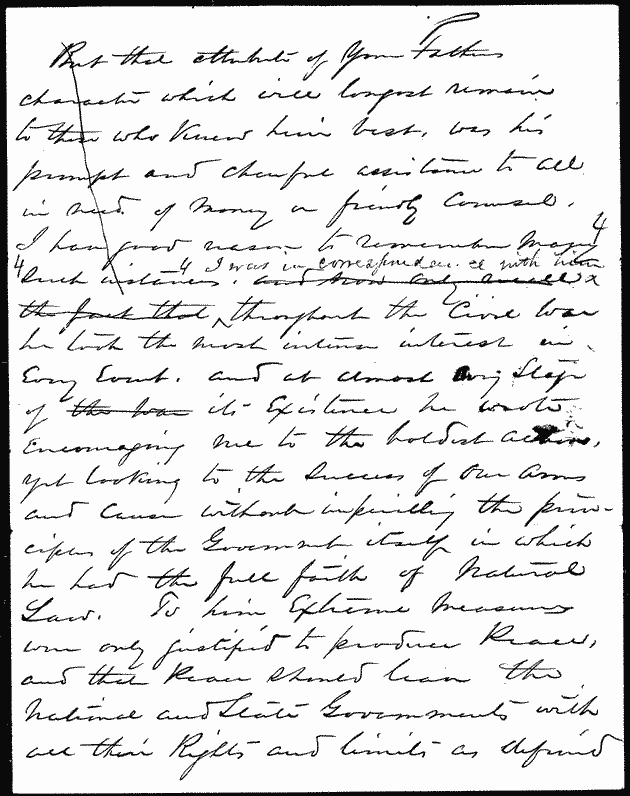 But that attribute of your Fathers
character which will longest remain
to those who Knew him best, was his
prompt and cheerful assistance to all
in need of money or friendly Counsel.
I have good reason to remember many 4
4 Such instances. 4 I was in correspondence with him
and now only recall x
the fact that ^ throughout the Civil War
he took the most intense interest in
Every Event. and at almost Every Stage
of the War its Existence he wrote
Encouraging me to the boldest action,
yet looking to the Success of our arms
and Cause without imperilling the prin-
ciples of the Government itself in which
he had the full faith of Natural
Law. To him Extreme measures
were only justified to produce Peace,
and that Peace should leave the
National and State Governments with
all their Rights and limits as defined